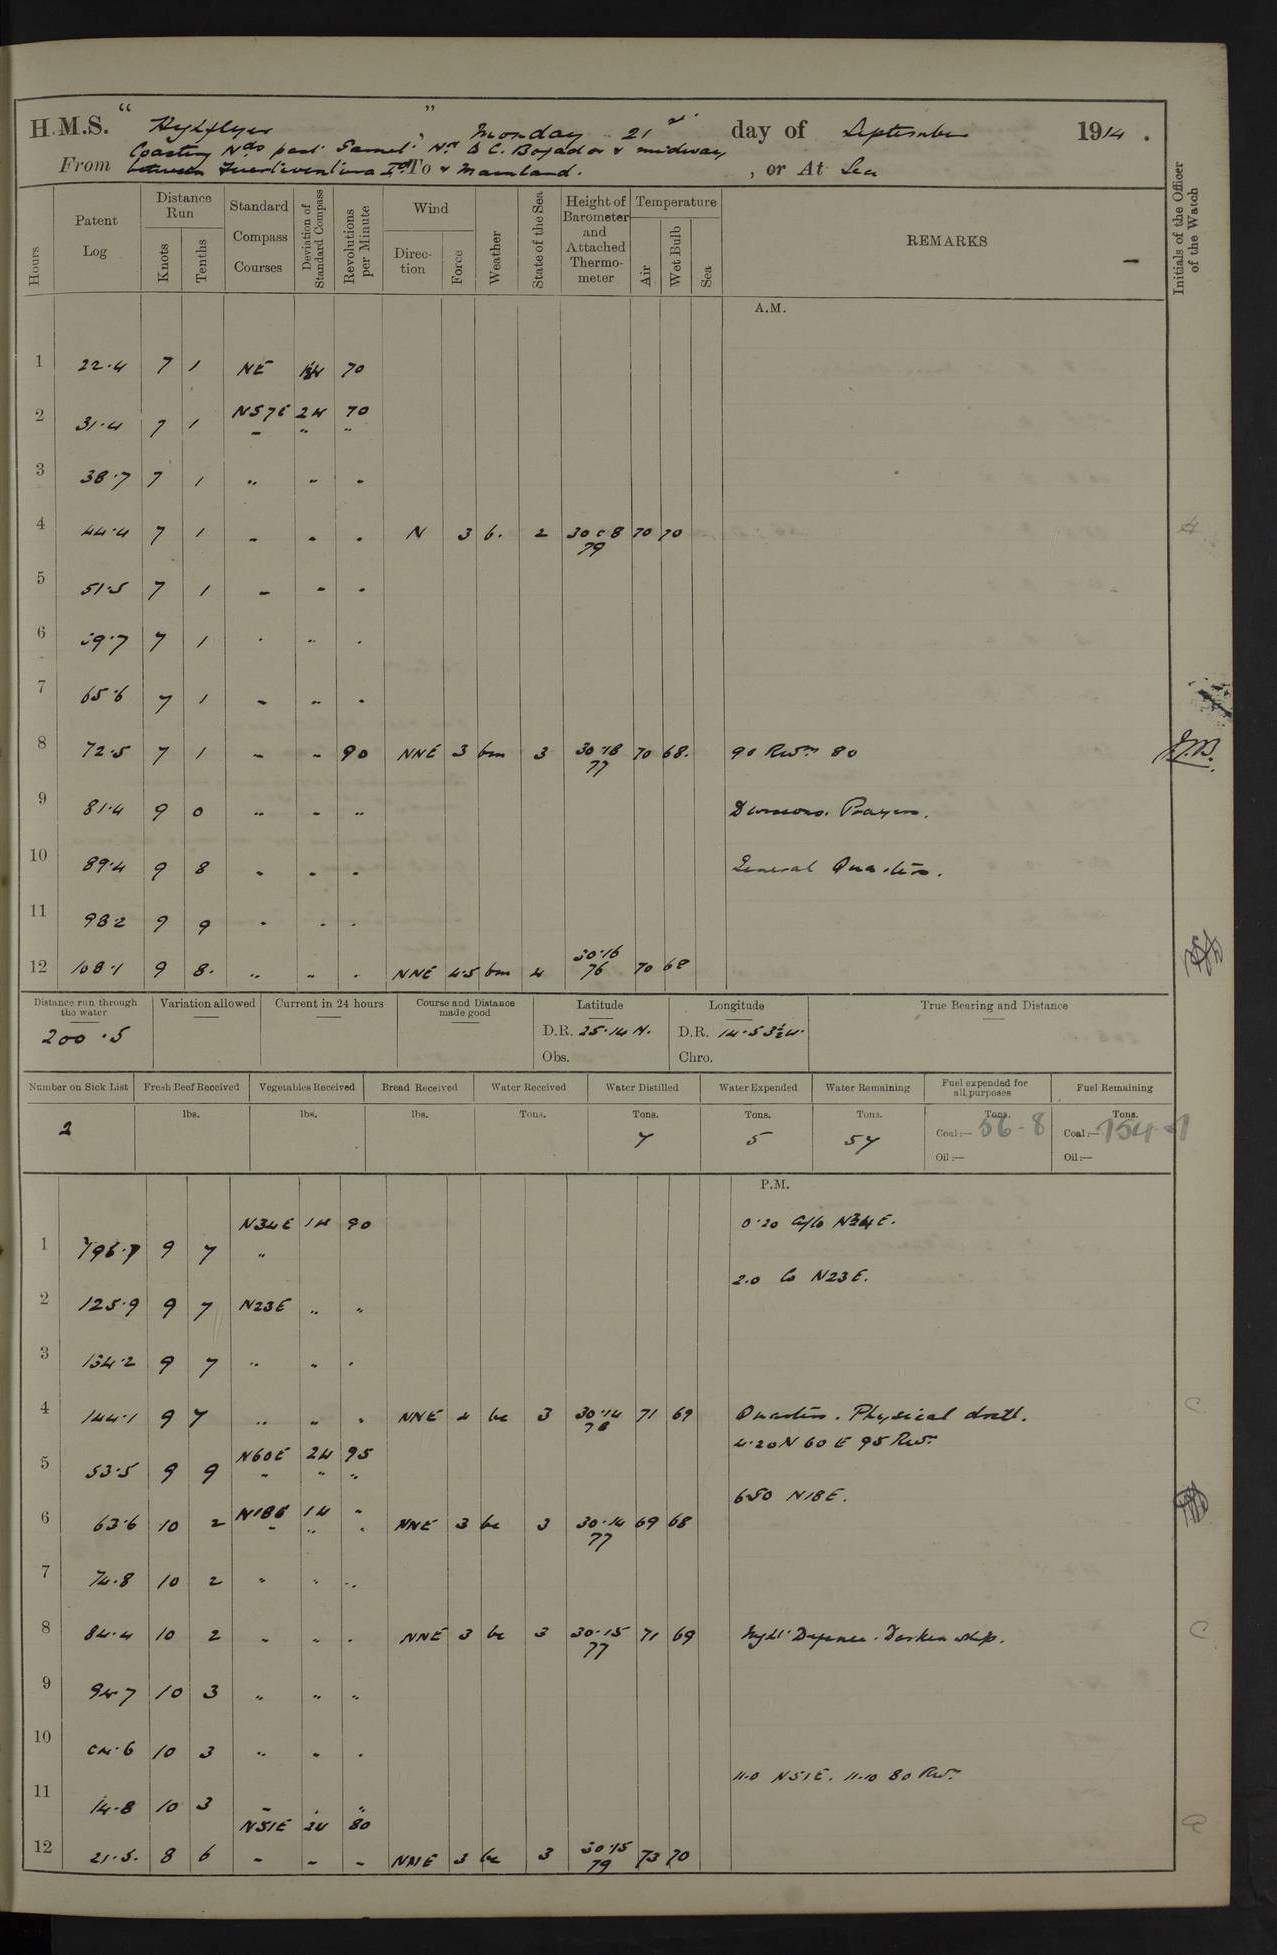 H.M.S. "Highflyer" Monday 21st day of September 1914.
Coasting Nds past Nn to C. Bojador & midway
From between Fuertiventura Id To & Mainland. , or At Sea
Hours Patent Log Distance Run Knots Tenths Standard Compass Courses Deviation of Standard Compass Revolutions per Minute Wind Direction Force Weather State of the Sea Height of Barometer and Attached Thermometer Temperature Air Wet Bulb Sea REMARKS Initials of the Officer of the Watch
A.M.
1 22.4 7 1 NE 70
N57E 2W 70
2 31.4 7 1 - " "
3 38.7 7 1 " " -
4 44.4 7 1 - - - N 3 b. 2 30.08 70 70
79
5 51.5 7 1 - - -
6 59.7 7 1 - " -
7 65.6 7 1 - " -
8 72.5 7 1 - - 90 NNE 3 bm 3 30.18 70 68. 90 Revns 80
77
9 81.4 9 0 " - " Divisions. Prayers.
10 89.4 9 8 - - - General Quarters.
11 98.2 9 9 - - -
30.16
12 108.1 9 8. " " - NNE 4.5 bm 4 76 70 68
Distance run through the water Variation allowed Current in 24 hours Course and Distance made good Latitude Longitude True Bearing and Distance
200.5 D.R. 25.14 N. D.R. 14.53½W.
Obs. Chro.
Number on Sick List Fresh Beef Received Vegetables Received Bread Received Water Received Water Distilled Water Expended Water Remaining Fuel expended for all purposes Fuel Remaining
lbs. lbs. lbs. Tons. Tons. Tons. Tons. Tons. Tons.
2 7 5 57 Coal:— 56-8 Coal:—
Oil:— Oil:—
P.M.
N34E 1W 90 0.20 A/Co N34E.
1 9 7 "
2.0 Co N23E.
2 125.9 9 7 N23E " "
3 134.2 9 7 " " -
4 144.1 9 7 " " - NNE 4 bc 3 30.14 71 69 Quarters. Physical drill.
78
N60E 2W 95 4.20 N60E 95 Revs
5 53.5 9 9 - " "
6.50 N18E.
N18E 1W "
6 63.6 10 2 - " - NNE 3 bc 3 30.14 69 68
77
7 74.8 10 2 " " "
8 84.4 10 2 - - - NNE 3 bc 3 30.15 71 69 Night Defence. Darken ship.
77
9 94.7 10 3 " " "
10 04.6 10 3 " - -
11.0 N51E. 11.10 80 Revs
11 14.8 10 3 - - "
N51E 2W 80
12 21.5. 8 6 - - - NNE 3 bc 3 30.15 73 70
79